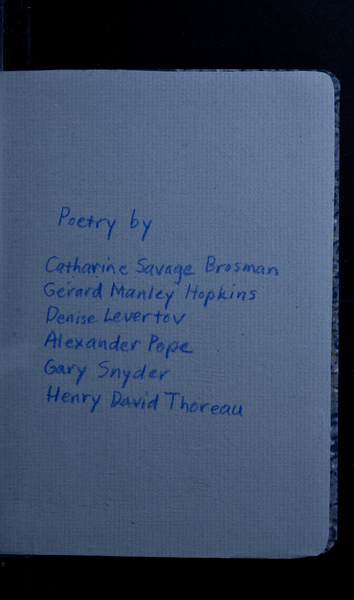 Poetry by
Catharine Savage Brosman
Gerard Manley Hopkins
Denise Levertov
Alexander Pope
Gary Snyder
Henry David Thoreau